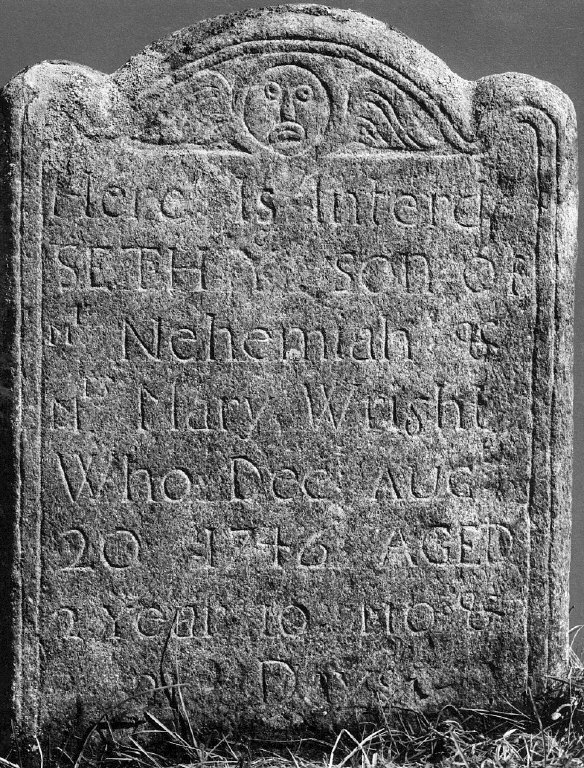 Here Is Interd
SETH Yᵉ son of
Mʳ Nehemiah &
Mʳˢ Mary Wright
Who Decᵈ AUGᵗ
20 1746 AGED
2 Year 10 Mo &
Days